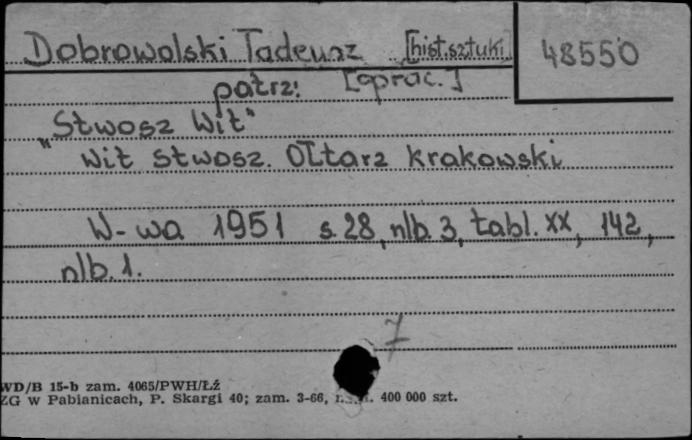 Dobrowolski Tadeusz [hist.sztuki] 48550
patrz: [oprac.]
"Stwosz Wit"
Wit Stwosz. Ołtarz krakowski
W-wa 1951 s. 28, nlb. 3, tabl. XX, 142,
nlb. 1.
7
WD/B 15-b zam. 4065/PWH/Łź
ZG w Pabianicach, P. Skargi 40; zam. 3-66, 400 000 szt.